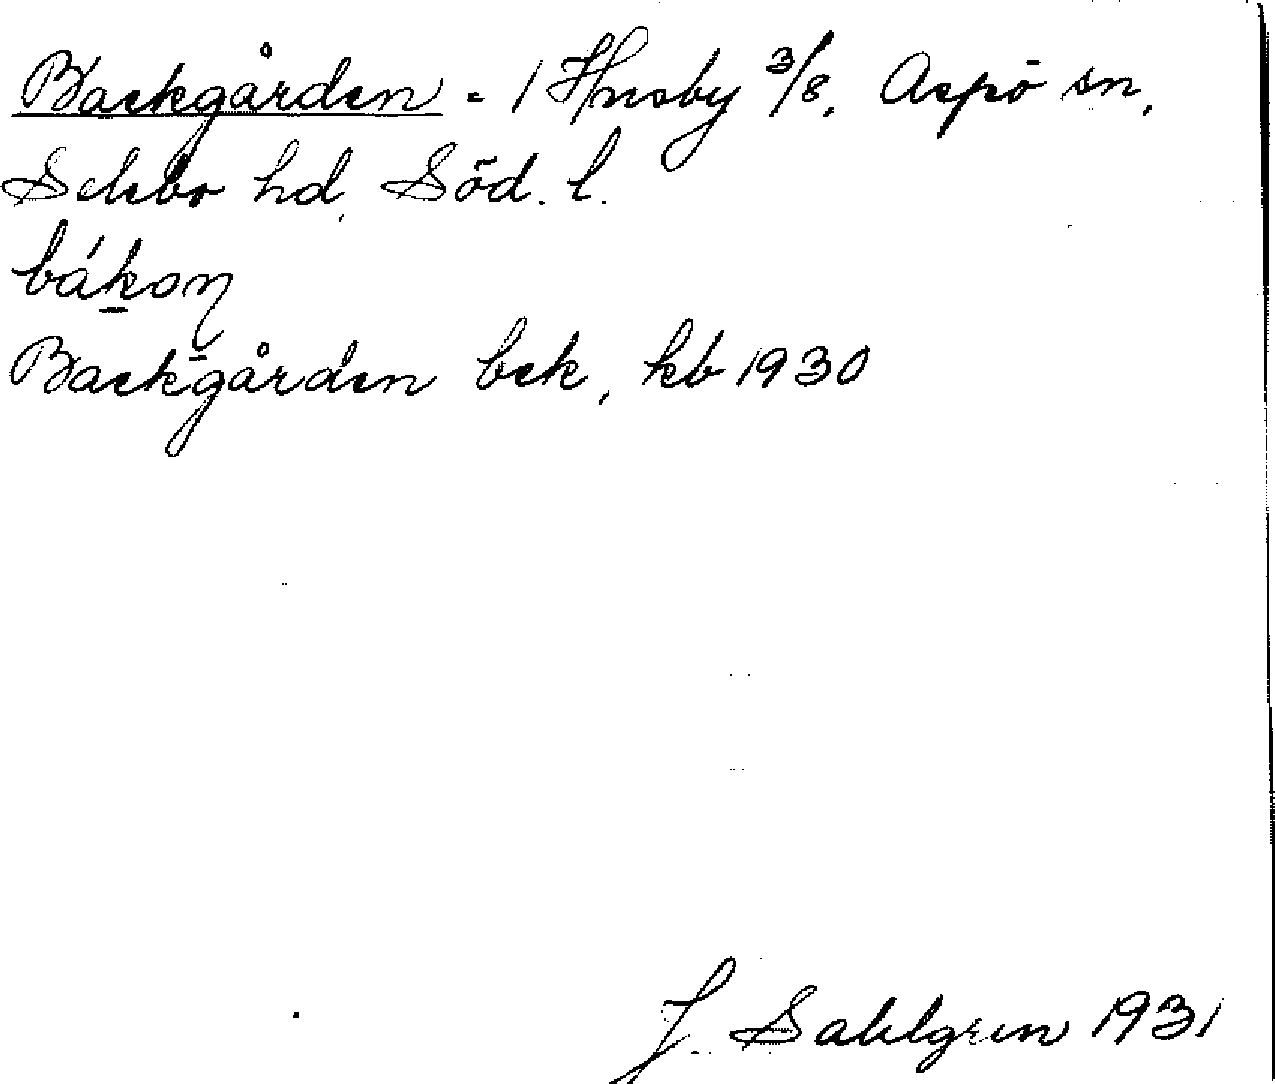 Backgården = 1 Husby 3/8, Aspö sn,
Selebo hd, Söd. l.
Backgården bek, kb 1930
J. Sahlgren 1931